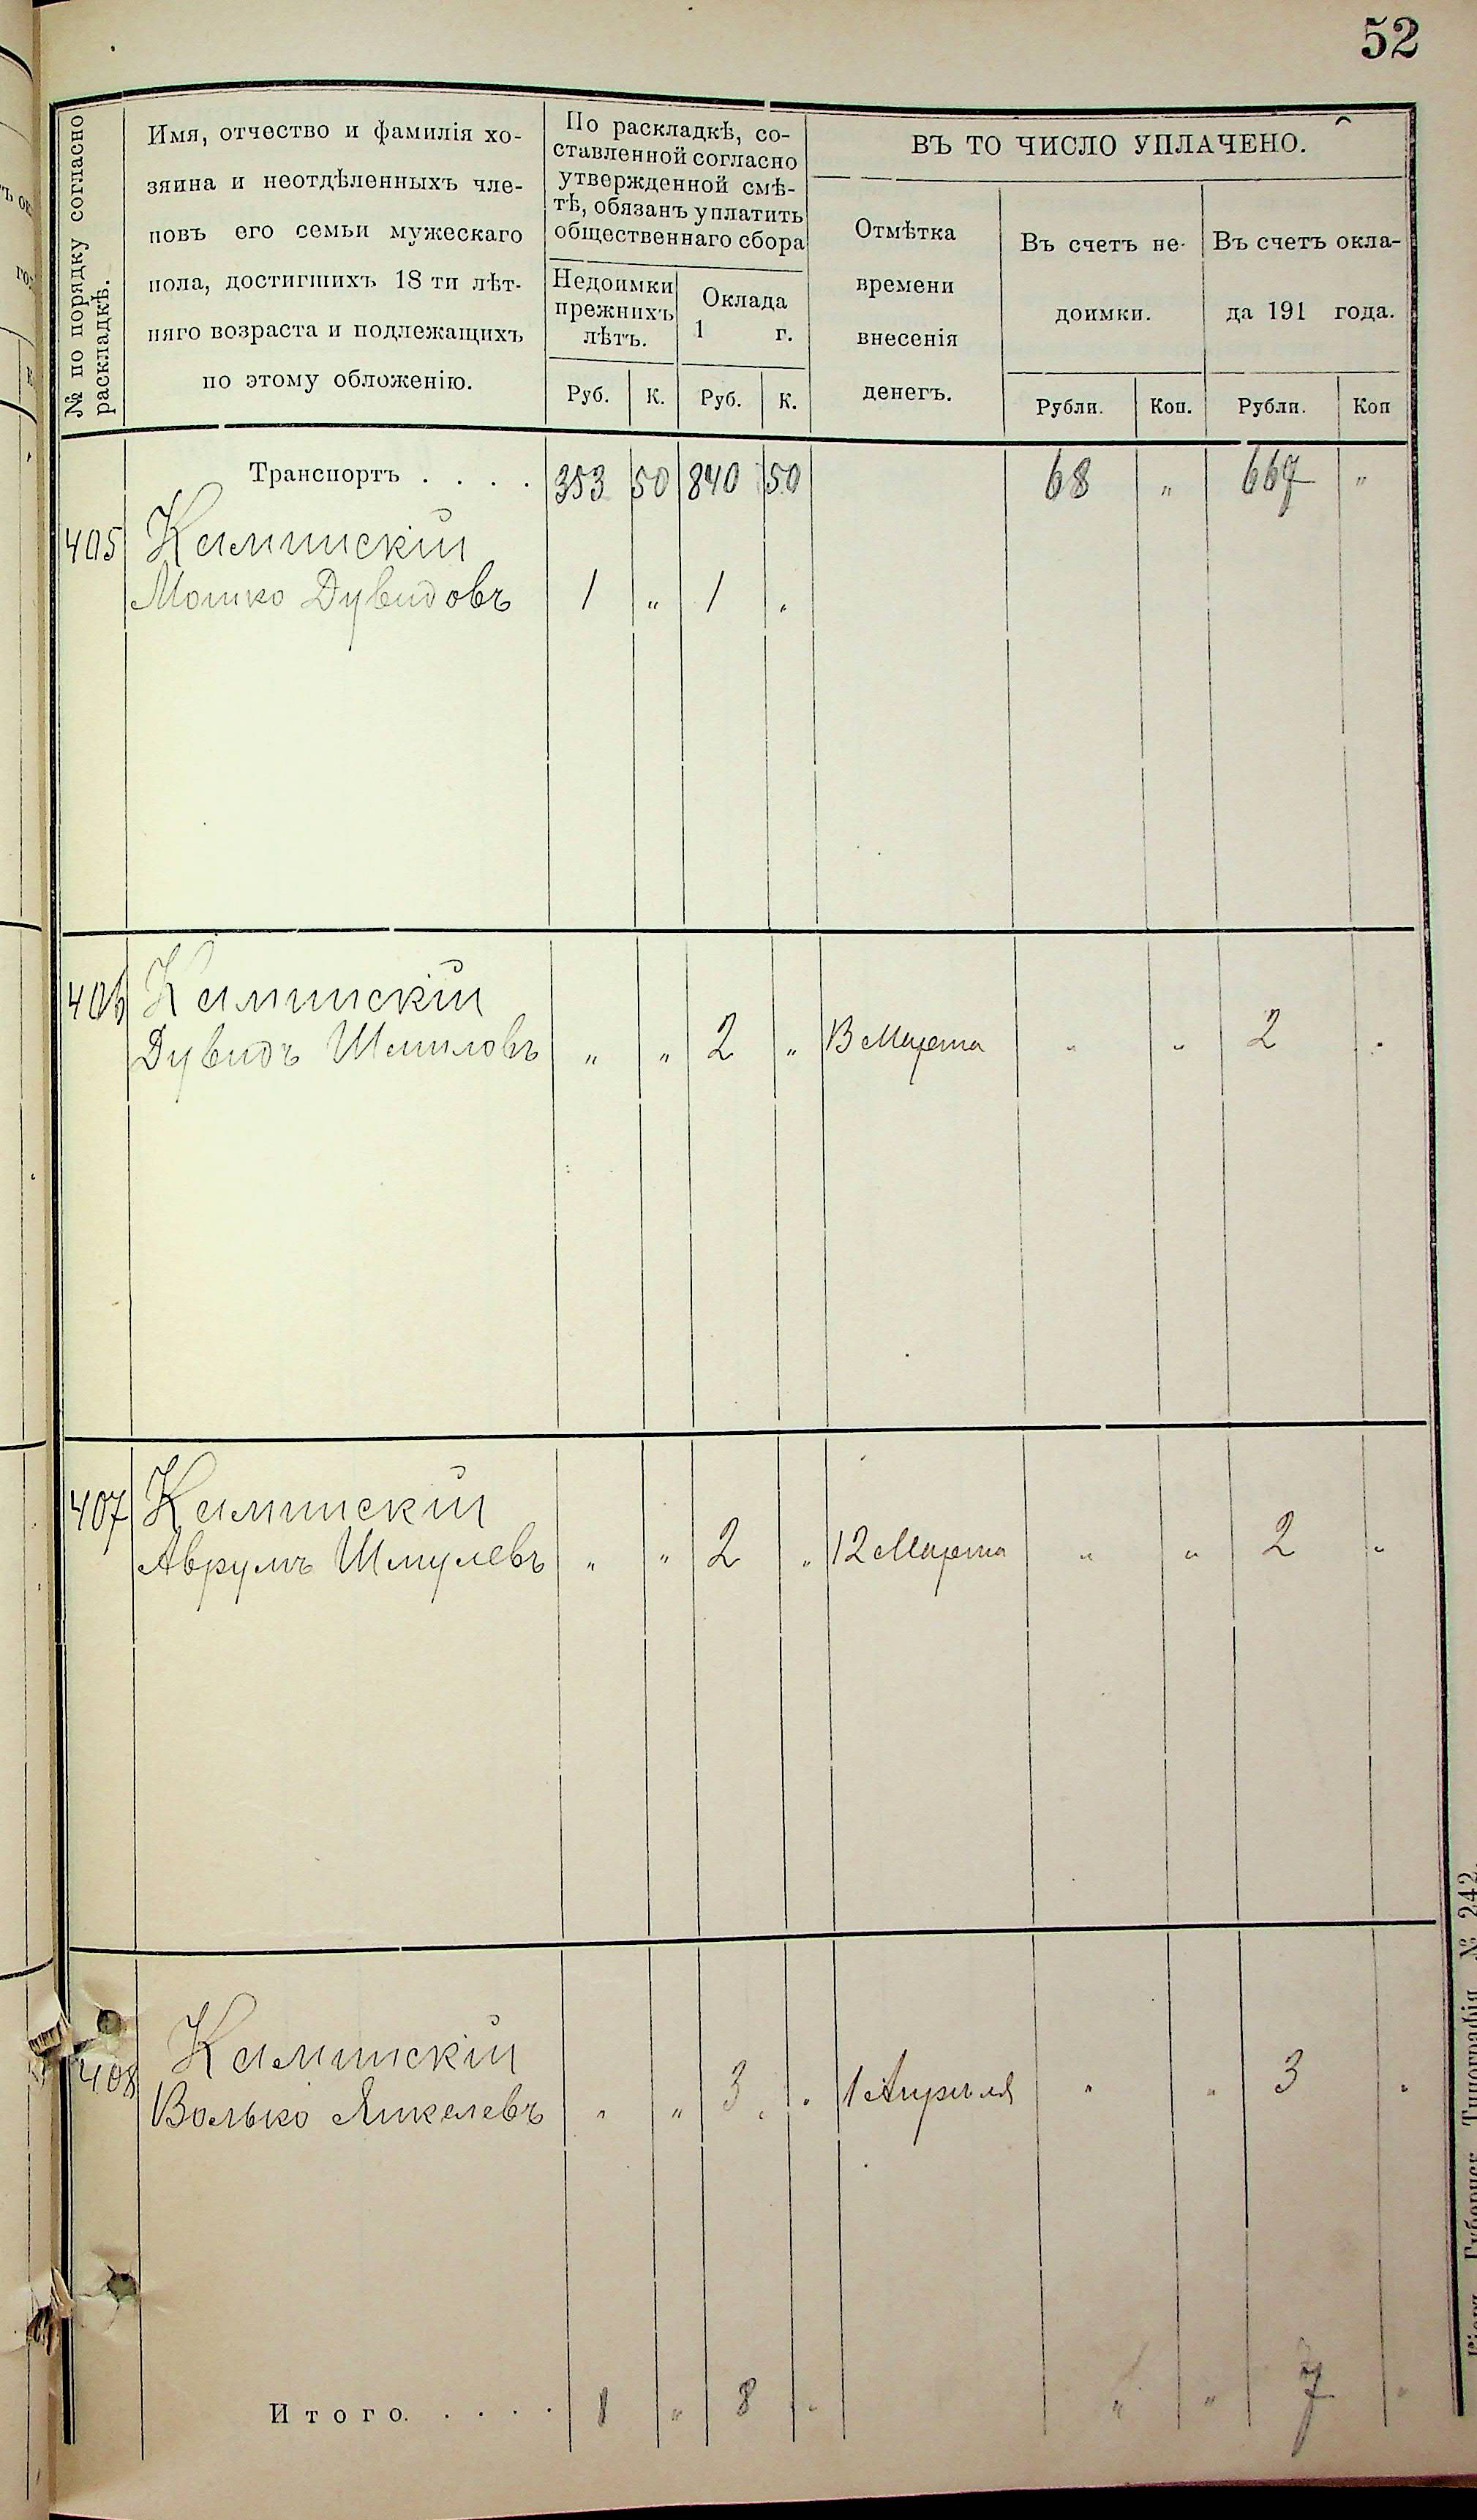 52
№ по порядку согласно
раскладкѣ.
Имя, отчество и фамилія хо-
зяина и неотдѣленныхъ чле-
новъ его семьи мужескаго
пола, достигшихъ 18 ти лѣт-
няго возраста и подлежащихъ
по этому обложенію.
По раскладкѣ, со-
ставленной согласно
утвержденной смѣ-
тѣ, обязанъ уплатить
общественнаго сбора
Недоимки
прежнихъ
лѣтъ.
Оклада
1 г.
Руб. К. Руб. К.
ВЪ ТО ЧИСЛО УПЛАЧЕНО.
Отмѣтка
времени
внесенія
денегъ.
Въ счетъ не-
доимки.
Въ счетъ окла-
да 191 года.
Рубли. Коп. Рубли. Коп
Транспортъ . . . . 353 50 840 50 68 „ 667 „
405 Каминскій
Мошко Дувидовъ 1 „ 1 „
406 Каминскій
Дувидъ Шмиловъ „ „ 2 „ 13 Марта „ „ 2 „
407 Каминскій
Аврумъ Шмулевъ „ „ 2 „ 12 Марта „ „ 2 „
408 Каминскій
Волько Янкелевъ „ „ 3 „ 1 Апреля „ „ 3 „
Итого. . . . . 1 „ 8 „ „ „ 7 „
Губернск. Типографія № 242